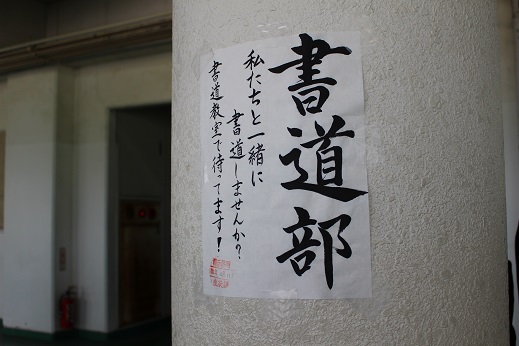 書道部
私たちと一緒に
書道しませんか？
書道教室で待ってます！